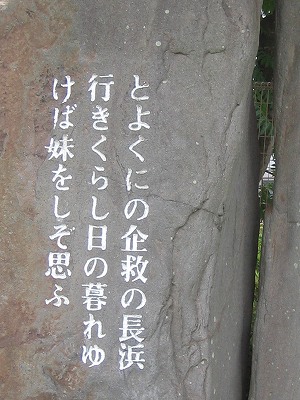 とよくにの企救の長浜
行きくらし日の暮れゆ
けば妹をしぞ思ふ